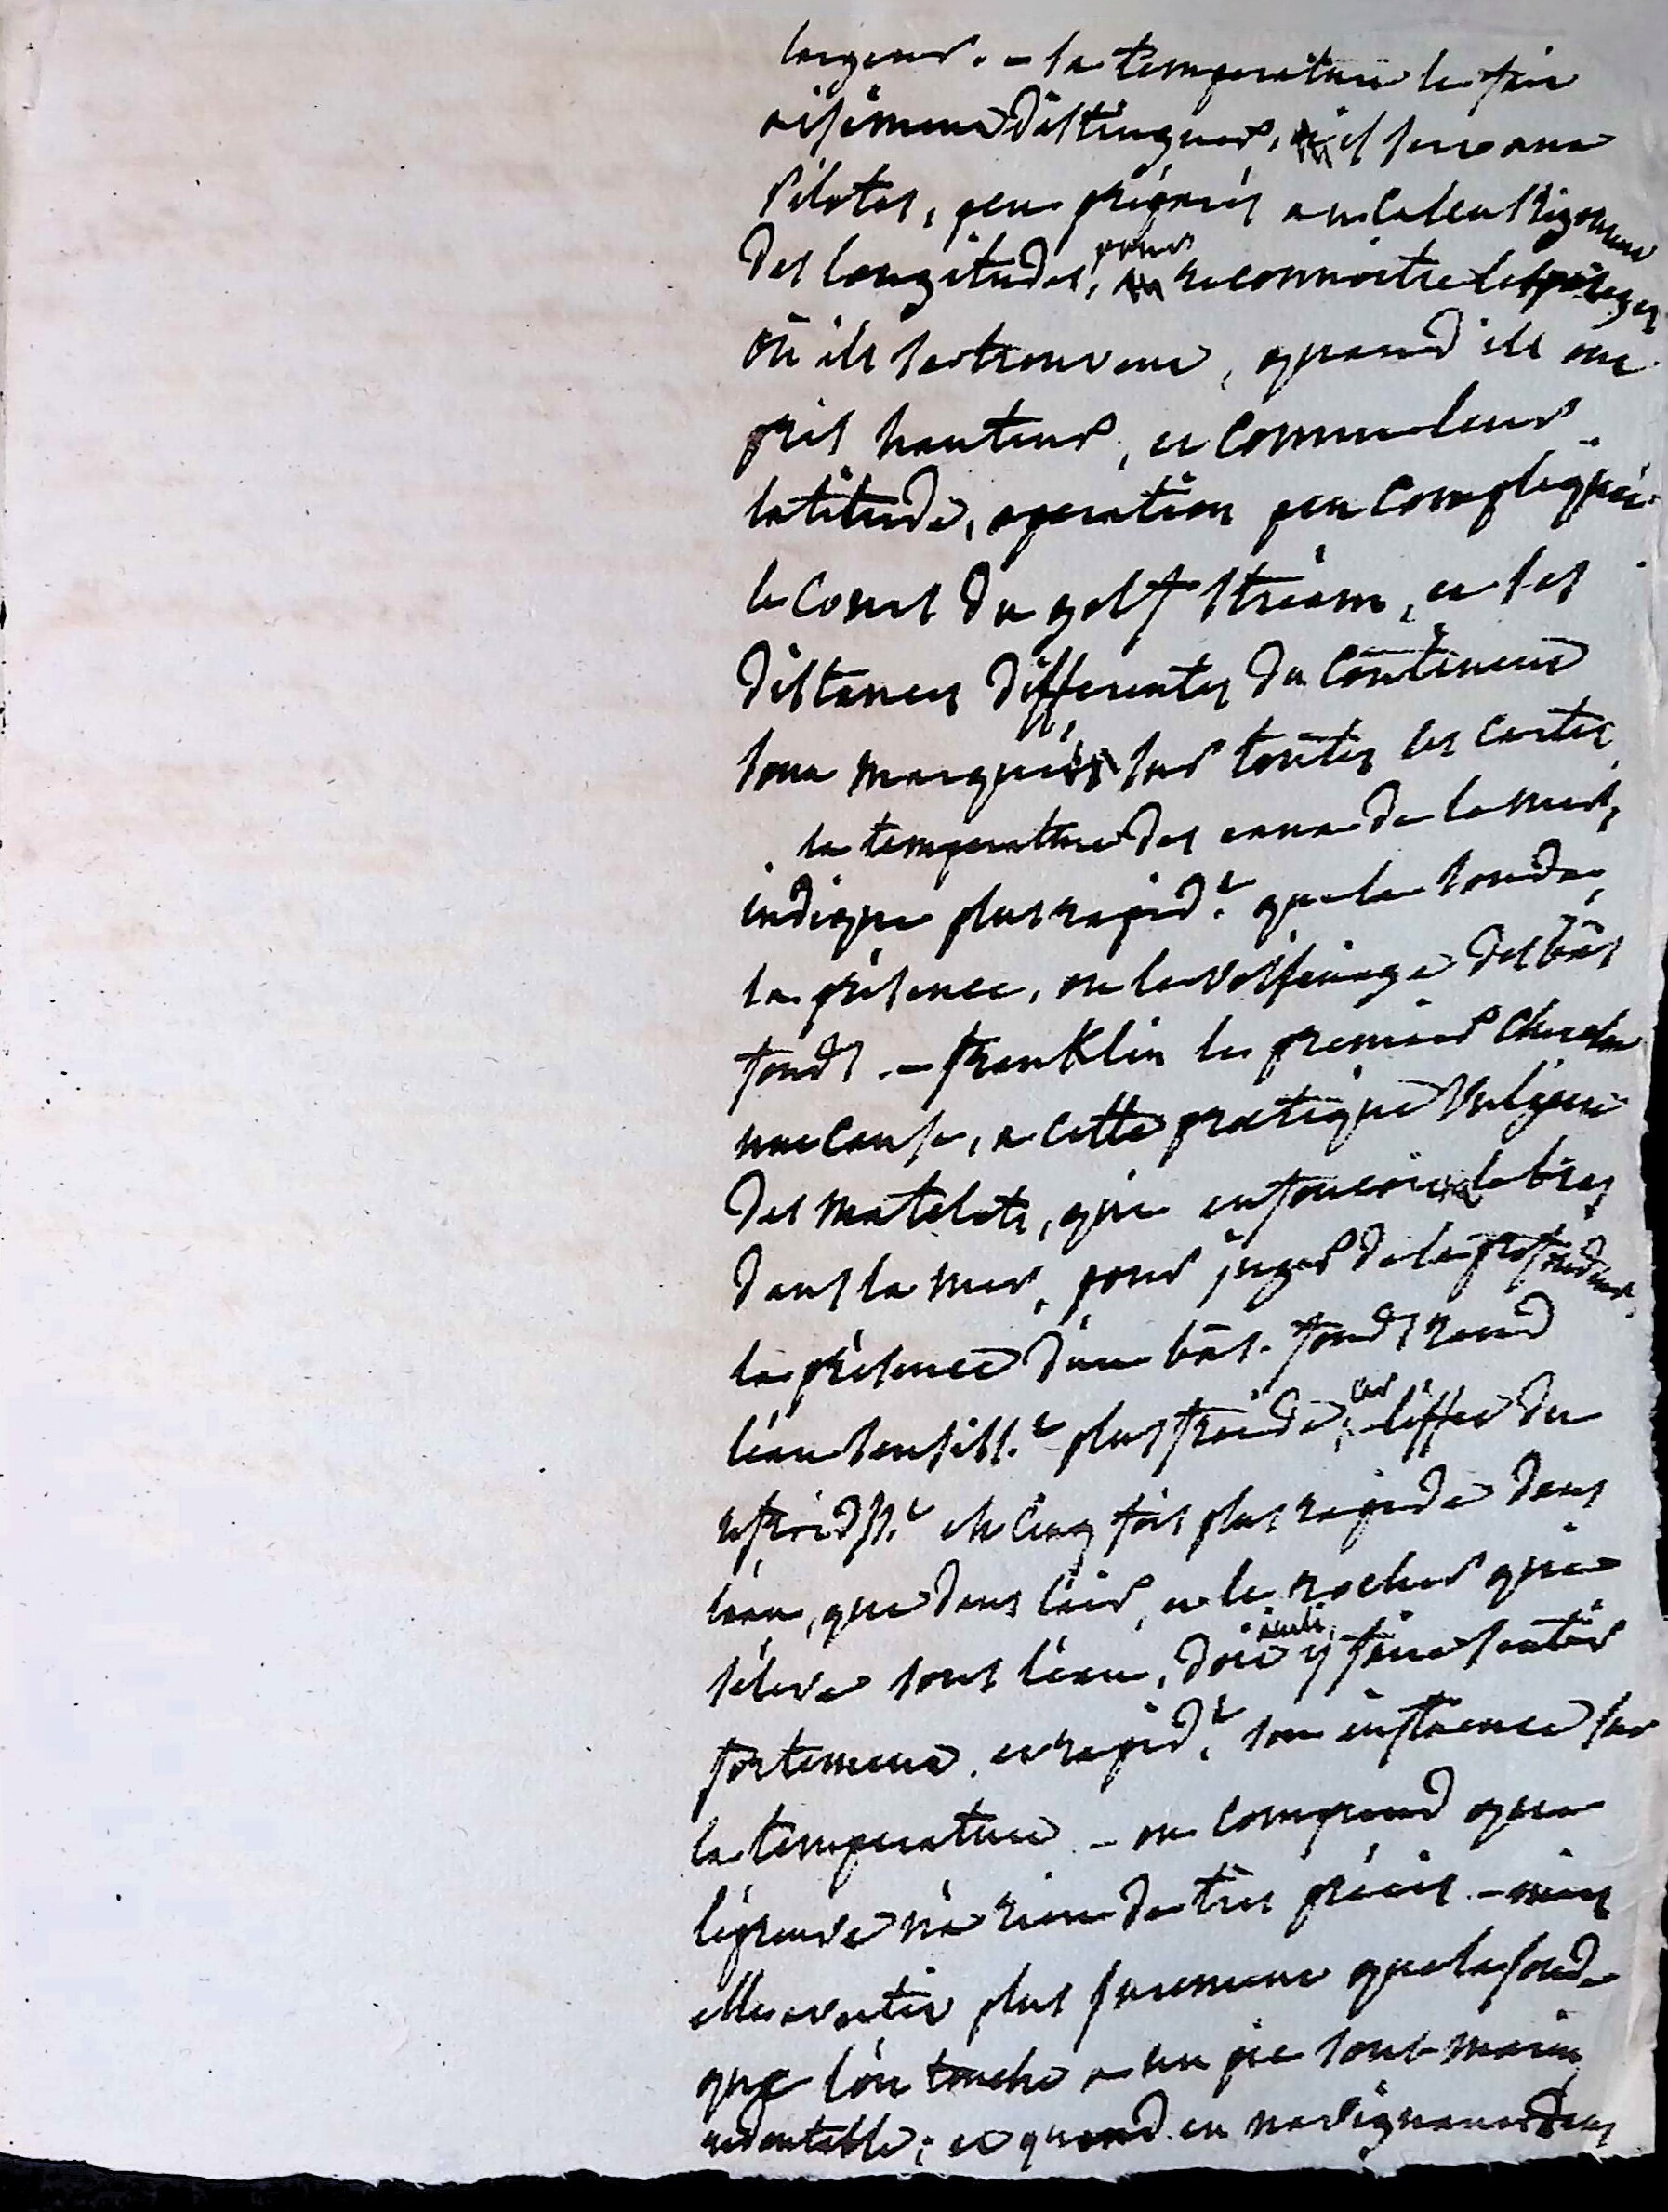 largeur. – la temperature le fait
aisément distinguer, il sert aux
Pilotes, peu préparés au calcul rigoureux
des longitudes, pour reconnoitre les parages
où ils se trouvent, quand ils ont
pris hauteur, et connu leur
latitude, operation peu compliquée.
le cours du golf stream, et ses
distances differentes du continent
sont marqués sur toutes les cartes,
la temperature des eaux de la mer,
indique plus rapid.t que la sonde,
la présence, ou le voisinage des bas
fonds. – franklin le premier chercha
une cause, a cette pratique vulgaire
des matelots, qui enfoncoient le bras
dans la mer, pour juger de la profondeur.
la présence d'un bas-fonds rend
l'eau sensibl.t plus froide, car l'effet du
refroidss.t est cinq fois plus rapide dans
l'eau, que dans l'air, et le rocher qui
s'éleve sous l'eau, doit y faire sentir
fortement et rapid.t son influence sur
la temperature – on comprend que
l'épreuve n'a rien de très précis – mais
elle avertit plus surement que la sonde
que l'on touche a un pic sous-marin
redoutable; et quand en naviguant dans